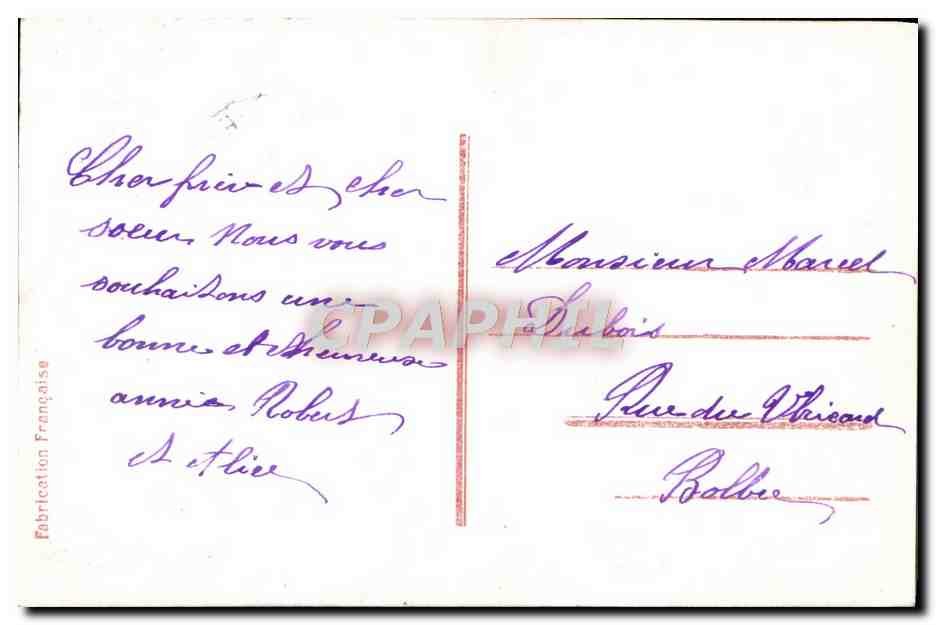 Cher frère et cher
soeur Nous vous
souhaitons une
bonne et heureuse
année Robert
et Alice
Monsieur Marcel
Dubois
Rue du
Bolbec
Fabrication Française
CPAPHIL